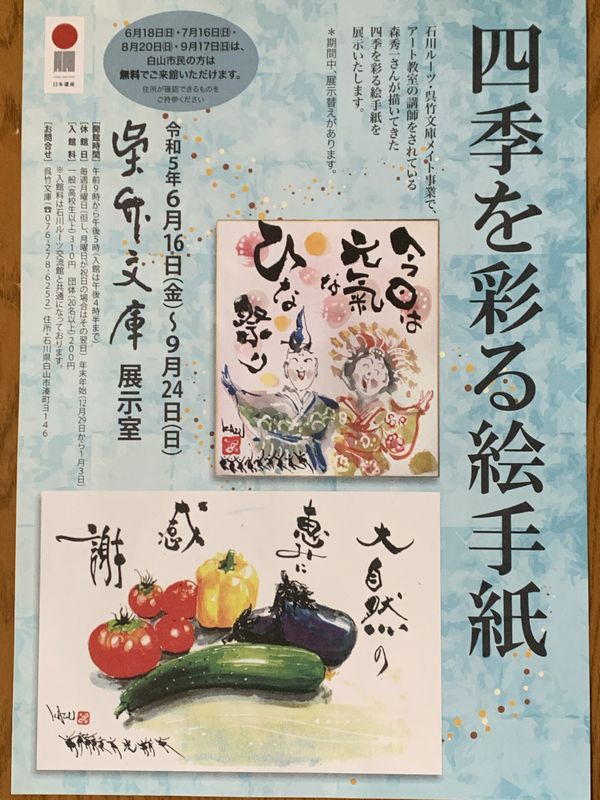 四季を彩る絵手紙
石川ルーツ・呉竹文庫メイト事業で、
アート教室の講師をされている
森秀一さんが描いてきた
四季を彩る絵手紙を
展示いたします。
＊期間中、展示替えがあります。
6月18日(日)・7月16日(日)・
8月20日(日)・9月17日(日)は、
白山市民の方は
無料でご来館いただけます。
住所が確認できるものを
ご持参ください
日本遺産
今日は
元氣な
ひな
祭り
令和5年6月16日(金)～9月24日(日)
呉竹文庫 展示室
［開館時間］午前9時から午後5時(入館は午後4時半まで)
［休館日］毎週月曜日(但し、月曜日が祝日の場合はその翌日) 年末年始(12月29日から1月3日)
［入館料］一般(高校生以上)310円 団体(20名以上)200円
※入館料は石川ルーツ交流館と共通になっております。
［お問合せ］呉竹文庫(☎076-278-6252) 住所・石川県白山市湊町ヨ146
大自然の
恵みに
感
謝